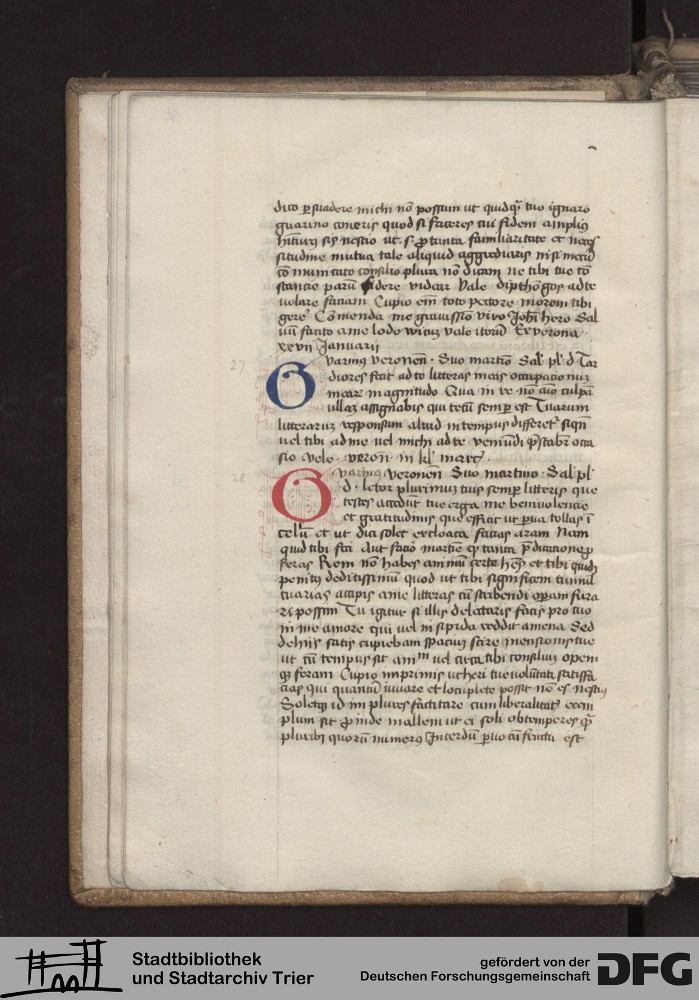 dico ꝑsuadere michi nō possum ut quidq̄ tuo ignaro
guarino coneris quod si faceres tui fidem ampliꝰ
sis nescio ut ꝓ tanta familiaritate et neces
situdine mutua tale aliquid aggrediaris nisi mecū
cōmunicato consilio plura nō dicam ne tibi tue cō
stancie parū fidere videar Vale dipthōgos ad te
volare faciam Cupio em̄ toto pectore morem tibi
gere Cōmenda me gravissīo viro Joh̄i hero Sal
uū facito a me lodowicus vale iterū Ex verona
xxvii Januarii
27
Guarinus veronen̄ · Suo martīo Sal pl d Tar
diores fecit ad te litteras meas occupacionuꝫ
mearꝝ magnitudo Qua in re nō meā culpā
ullaꝫ assignabis qui tecū semꝑ est Tuarum
litterarum responsum aliud in tempus differet
uel tibi ad me uel michi ad te veniūdi p̄stabit occa
sio Vale · veron · iii kl marc
28
Guarinus veronen̄ Suo martino · Sal pl
d · letor plurimuꝫ tuis semꝑ litteris que
testes accedūt tue erga me beniuolencie
et gratitudinis que efficit ut ꝑua tollas ī
celū et ut dici solet ex cloaca facias aram Nam
quid tibi feci Aut facio martīe tanta p̄dicacione
feras Rem nō habes animū certe hēs et tibi quidꝫ
penitꝰ deditissimū quod ut tibi significem
tuarias accipis a me litteras cū scribendi oꝑam fura
ri possim Tu igitur si illis delectaris facis pro tuo
in me amore qui uel insipida reddit amena Sed
de hiis satis cupiebam spacium scire mensionis tue
ut cū tempus sit am̄ uel circa tibi consilium opem
qꝫ feram Cupio imprimis ut heri tue volūtati satisfa
cias qui quantū iuuare et locuplete possit nō es nesciꝰ
Soletqꝫ id in plures factitare cum liberalitatꝭ exem
plum sit ꝓinde mallem ut ei soli obtemperes q̄
pluribꝰ quorū numerꝰ Interdū ꝑuo cū fructu est
Stadtbibliothek
und Stadtarchiv Trier
gefördert von der
Deutschen Forschungsgemeinschaft
DFG